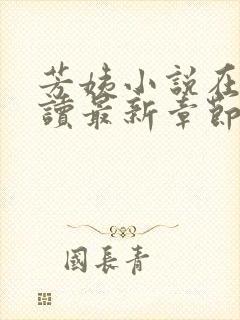 芳姨小説在
讀最新章節
國長青